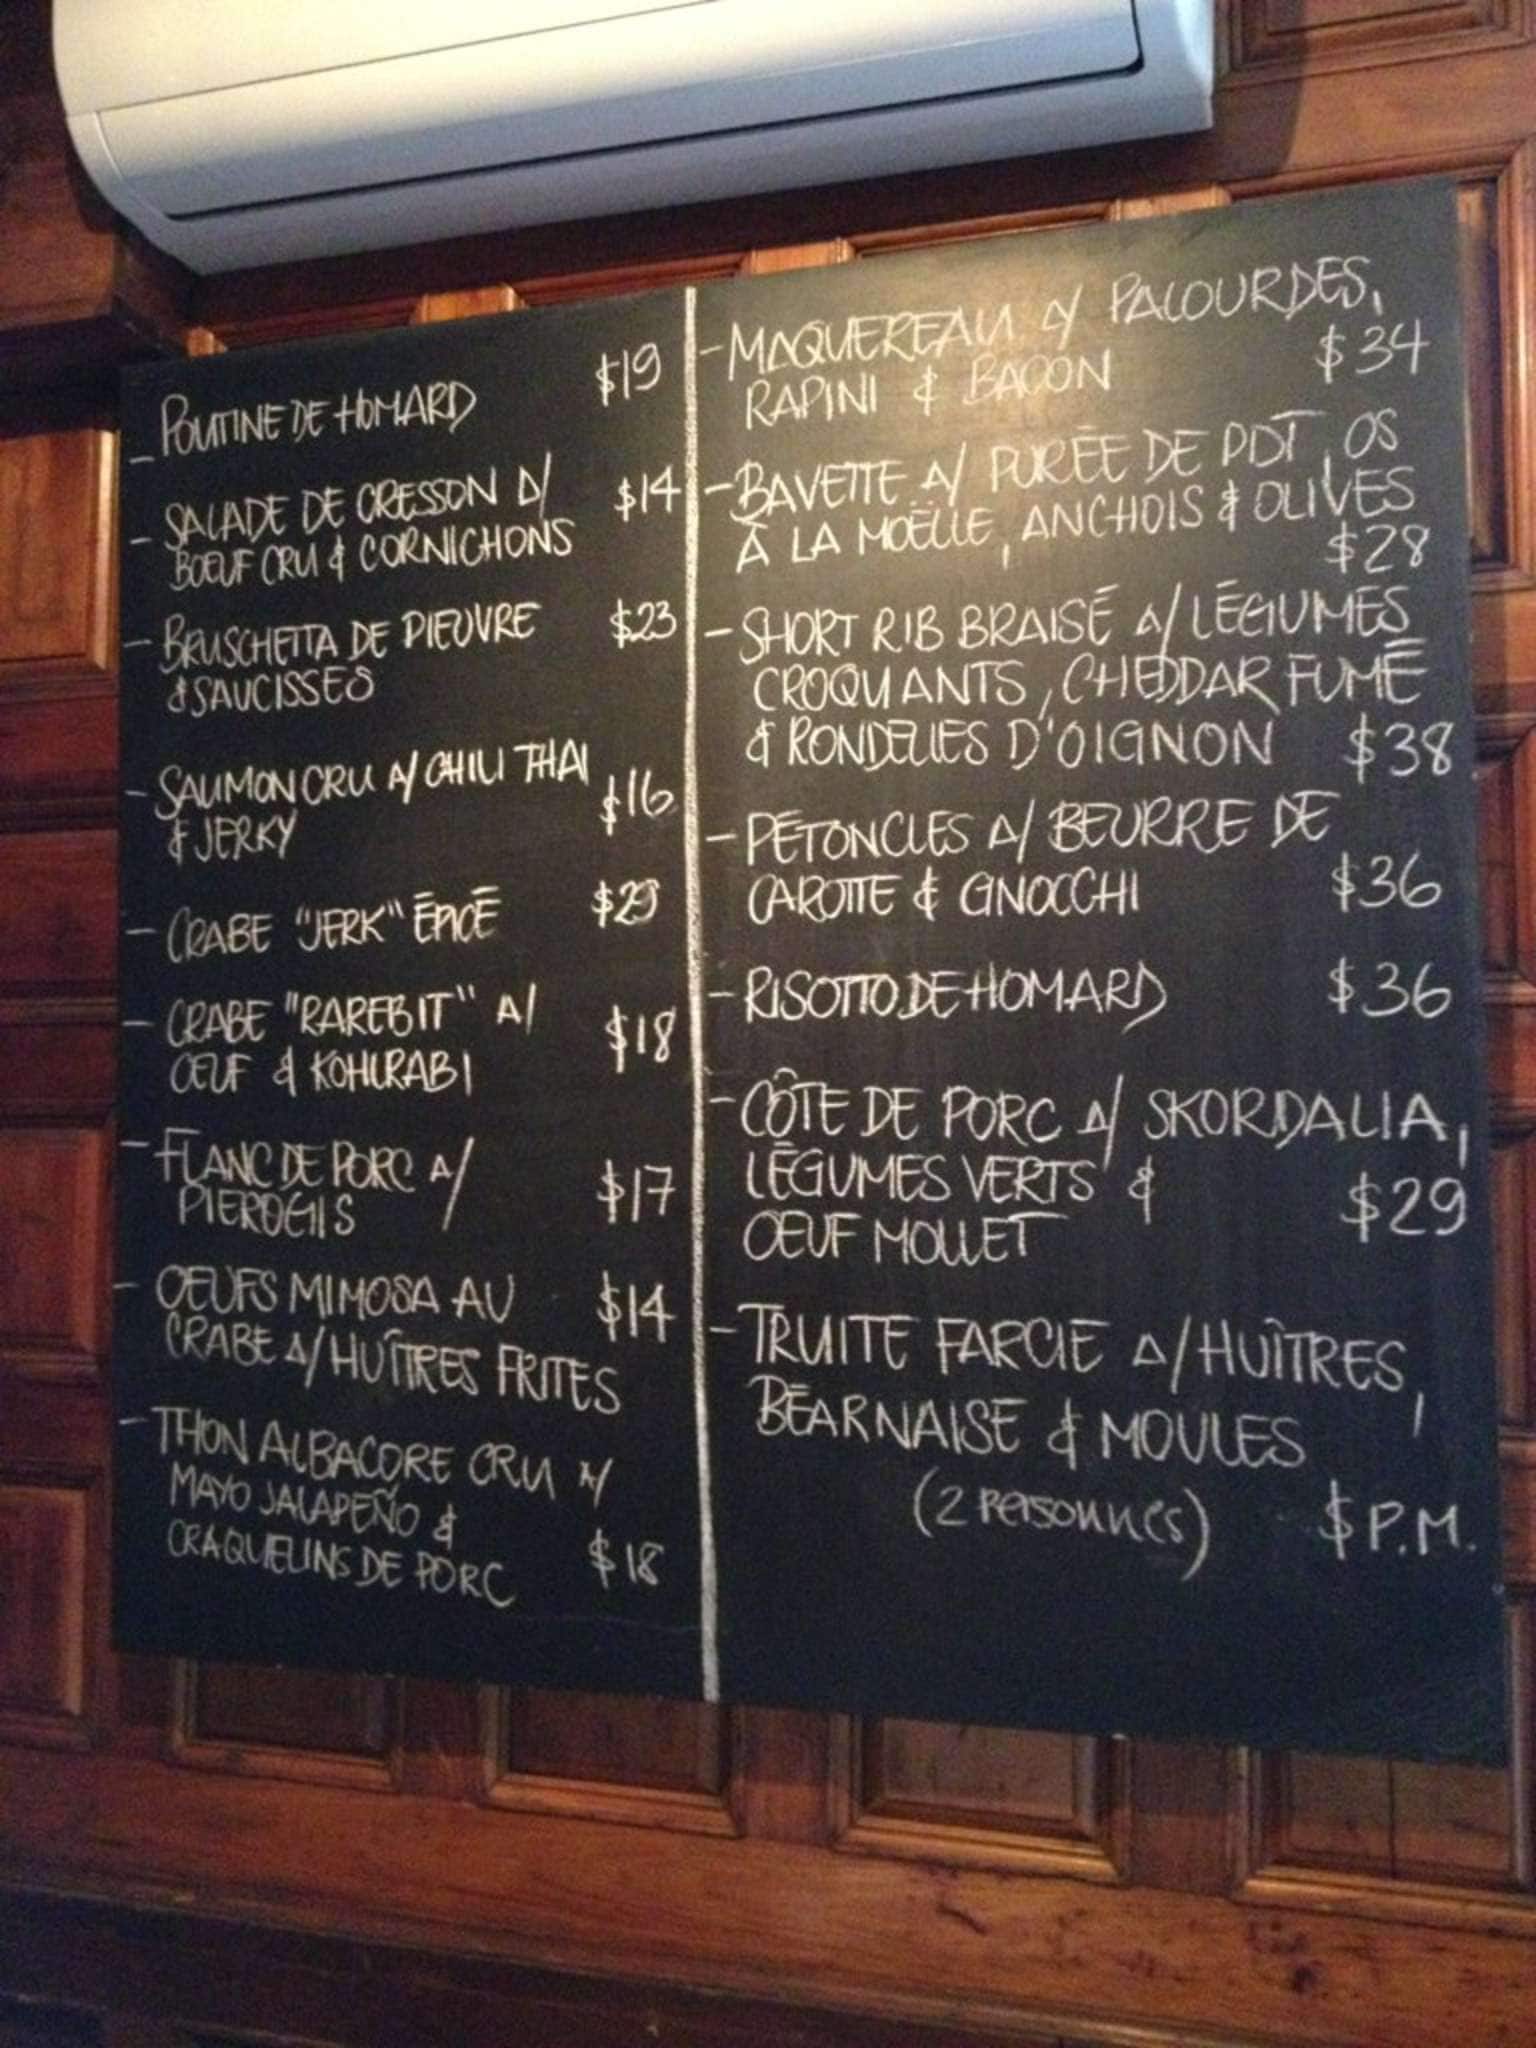 - POUTINE DE HOMARD $19
- SALADE DE CRESSON A/ $14
BOEUF CRU & CORNICHONS
- BRUSCHETTA DE PIEUVRE $23
& SAUCISSES
- SAUMON CRU A/ CHILI THAI
& JERKY $16
- CRABE "JERK" ÉPICÉ $29
- CRABE "RAREBIT" A/
OEUF & KOHLRABI $18
- FLANC DE PORC A/
PIEROGIS $17
- OEUFS MIMOSA AU $14
CRABE A/ HUÎTRES FRITES
- THON ALBACORE CRU A/
MAYO JALAPEÑO &
CRAQUELINS DE PORC $18
- MAQUEREAU A/ PALOURDES,
RAPINI & BACON $34
- BAVETTE A/ PURÉE DE PDT, OS
À LA MOËLLE, ANCHOIS & OLIVES
$28
- SHORT RIB BRAISÉ A/ LÉGUMES
CROQUANTS, CHEDDAR FUMÉ
& RONDELLES D'OIGNON $38
- PÉTONCLES A/ BEURRE DE
CAROTTE & GNOCCHI $36
- RISOTTO DE HOMARD $36
- CÔTE DE PORC A/ SKORDALIA,
LÉGUMES VERTS & $29
OEUF MOLLET
- TRUITE FARCIE A/ HUÎTRES,
BÉARNAISE & MOULES
(2 PERSONNES) $ P.M.